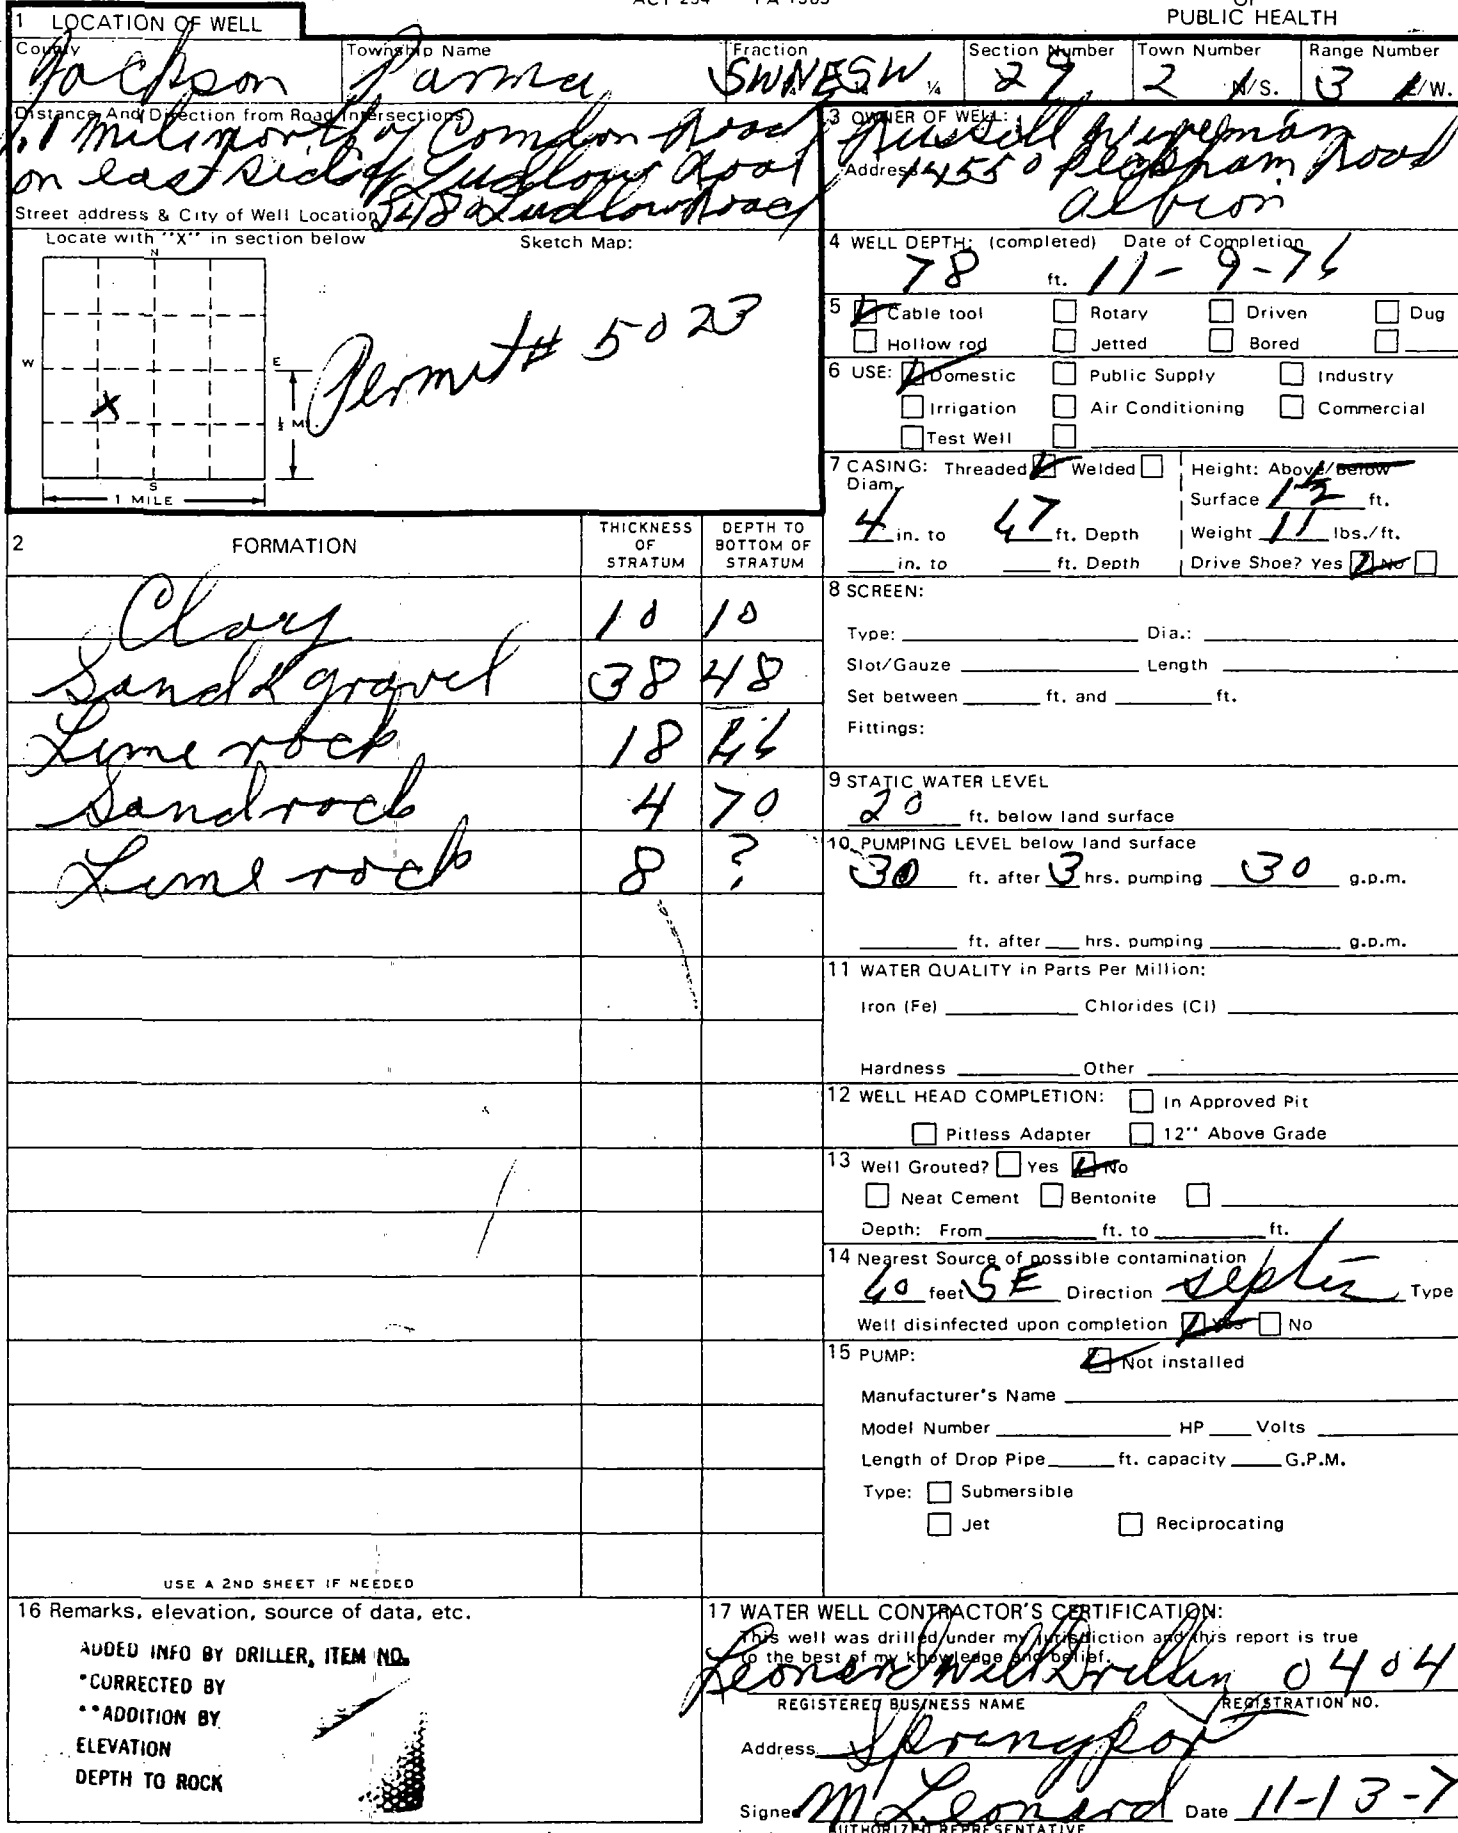 ACT 294 PA 1965
OF
PUBLIC HEALTH
1 LOCATION OF WELL
County Township Name Fraction Section Number Town Number Range Number
Jackson Parma SWNESW ¼ ¼ ¼ 29 2 N/S. 3 E/W.
Distance And Direction from Road Intersections
.1 mile north of Comdon Road
on east side of Ludlow Road
Street address & City of Well Location Ludlow Road
3 OWNER OF WELL:
Russell Wireman
Address 14550 Peckham Road
Albion
Locate with "X" in section below Sketch Map:
N
W E
X
½ MI
S
1 MILE
Permit # 5023
4 WELL DEPTH: (completed) Date of Completion
78 ft. 11-9-76
5 Cable tool Rotary Driven Dug
Hollow rod Jetted Bored
6 USE: Domestic Public Supply Industry
Irrigation Air Conditioning Commercial
Test Well
7 CASING: Threaded Welded Height: Above/Below
Diam.
Surface 1½ ft.
4 in. to 67 ft. Depth Weight 11 lbs./ft.
in. to ft. Depth Drive Shoe? Yes No
2 FORMATION THICKNESS OF STRATUM DEPTH TO BOTTOM OF STRATUM
Clay 10 10
Sand & gravel 38 48
Lime rock 18 66
Sandrock 4 70
Lime rock 8 ?
8 SCREEN:
Type: Dia.:
Slot/Gauze Length
Set between ft. and ft.
Fittings:
9 STATIC WATER LEVEL
20 ft. below land surface
10 PUMPING LEVEL below land surface
30 ft. after 3 hrs. pumping 30 g.p.m.
ft. after hrs. pumping g.p.m.
11 WATER QUALITY in Parts Per Million:
Iron (Fe) Chlorides (Cl)
Hardness Other
12 WELL HEAD COMPLETION: In Approved Pit
Pitless Adapter 12" Above Grade
13 Well Grouted? Yes No
Neat Cement Bentonite
Depth: From ft. to ft.
14 Nearest Source of possible contamination
60 feet SE Direction septic Type
Well disinfected upon completion Yes No
15 PUMP: Not installed
Manufacturer's Name
Model Number HP Volts
Length of Drop Pipe ft. capacity G.P.M.
Type: Submersible
Jet Reciprocating
USE A 2ND SHEET IF NEEDED
16 Remarks, elevation, source of data, etc.
ADDED INFO BY DRILLER, ITEM NO.
*CORRECTED BY
**ADDITION BY
ELEVATION
DEPTH TO ROCK
17 WATER WELL CONTRACTOR'S CERTIFICATION:
This well was drilled under my jurisdiction and this report is true
to the best of my knowledge and belief.
Leonard Well Drillin 0404
REGISTERED BUSINESS NAME REGISTRATION NO.
Address Springport
Signed M Leonard Date 11-13-7
AUTHORIZED REPRESENTATIVE